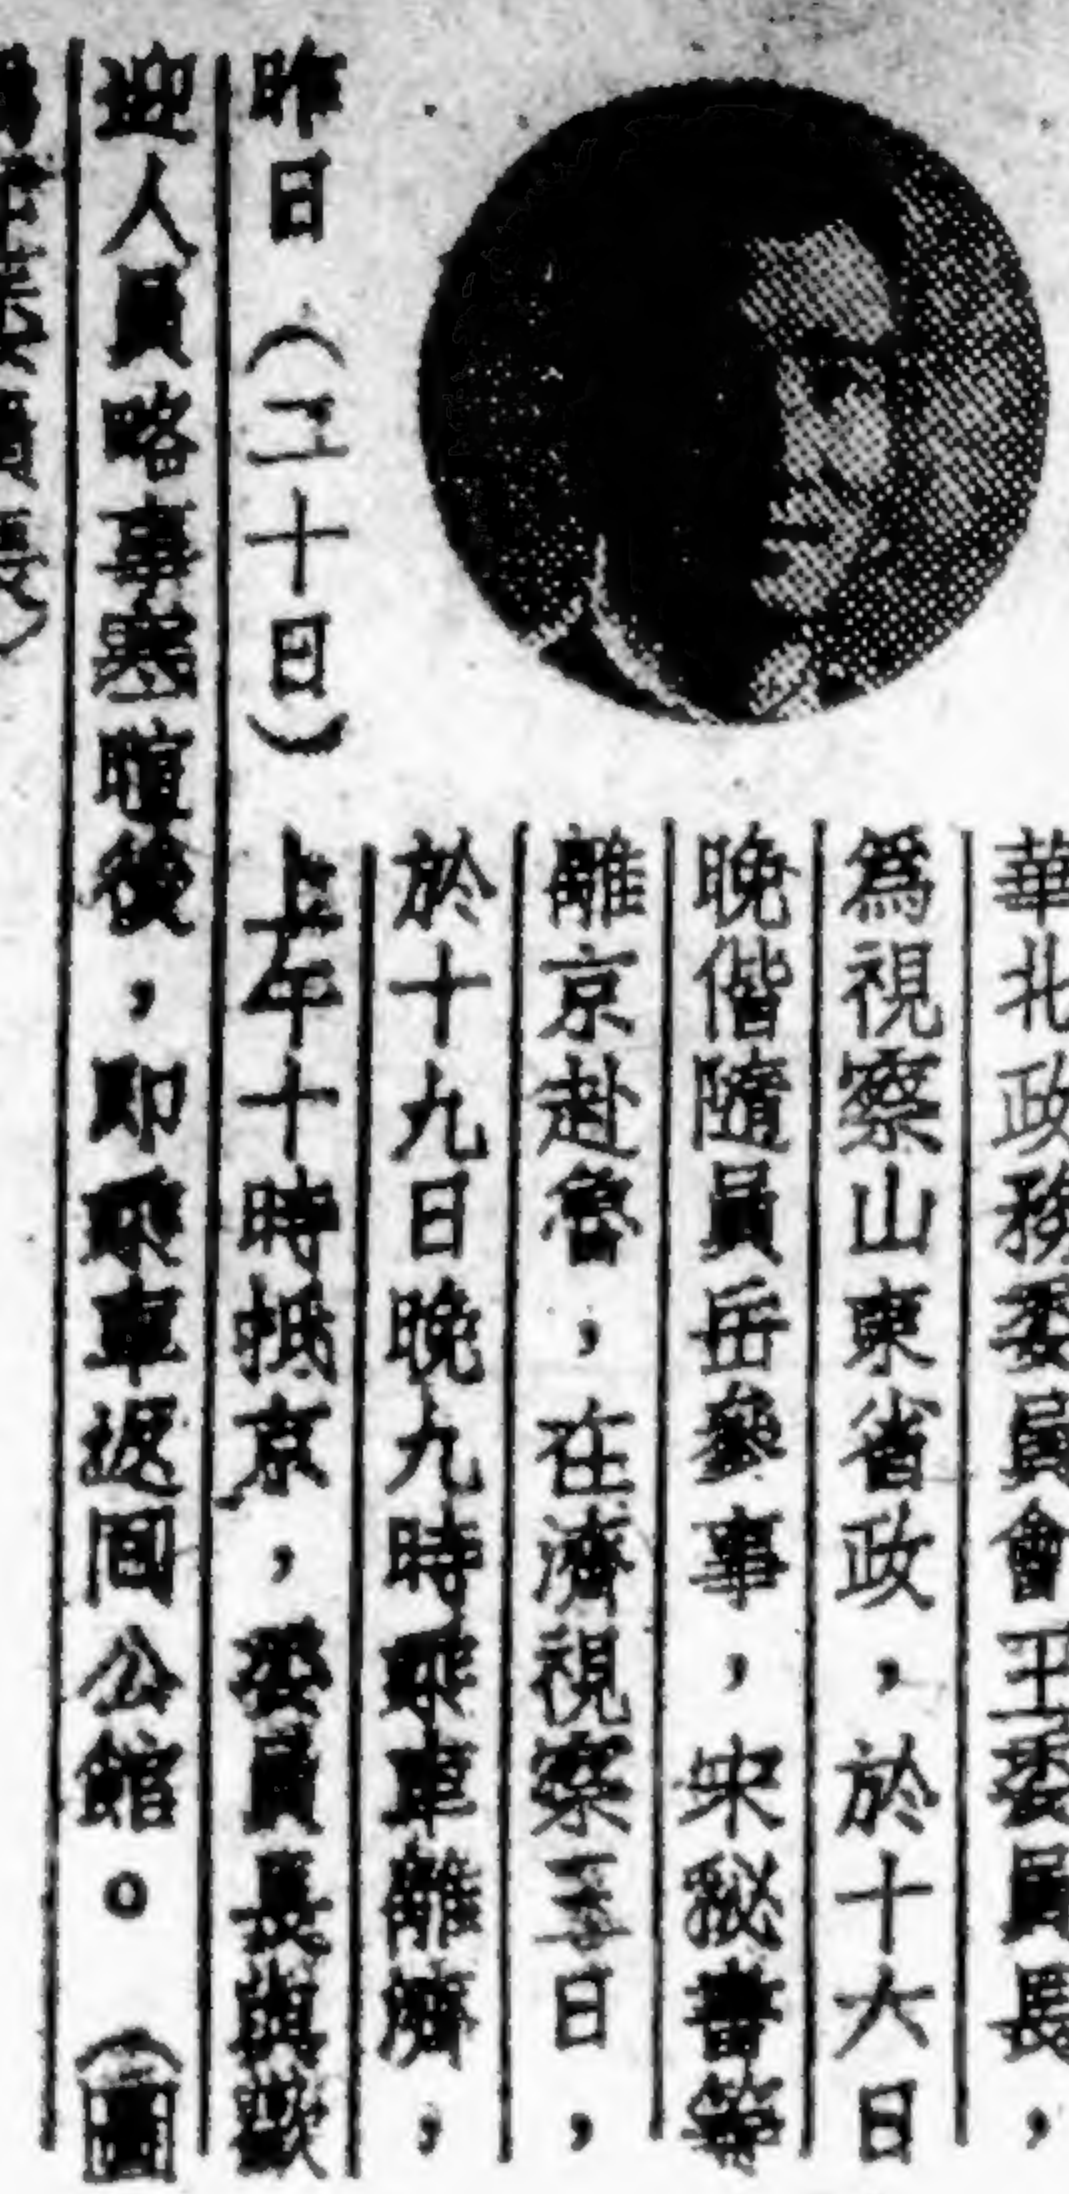 華北政務委員會王委員長，
爲視察山東省政，於十六日
晚偕隨員岳參事，宋秘書等
離京赴魯，在濟視察三日，
於十九日晚九時乘車離濟，
昨日（二十日）上午十時抵京，委員長與歡
迎人員略事寒暄後，即乘車返回公館。（圖